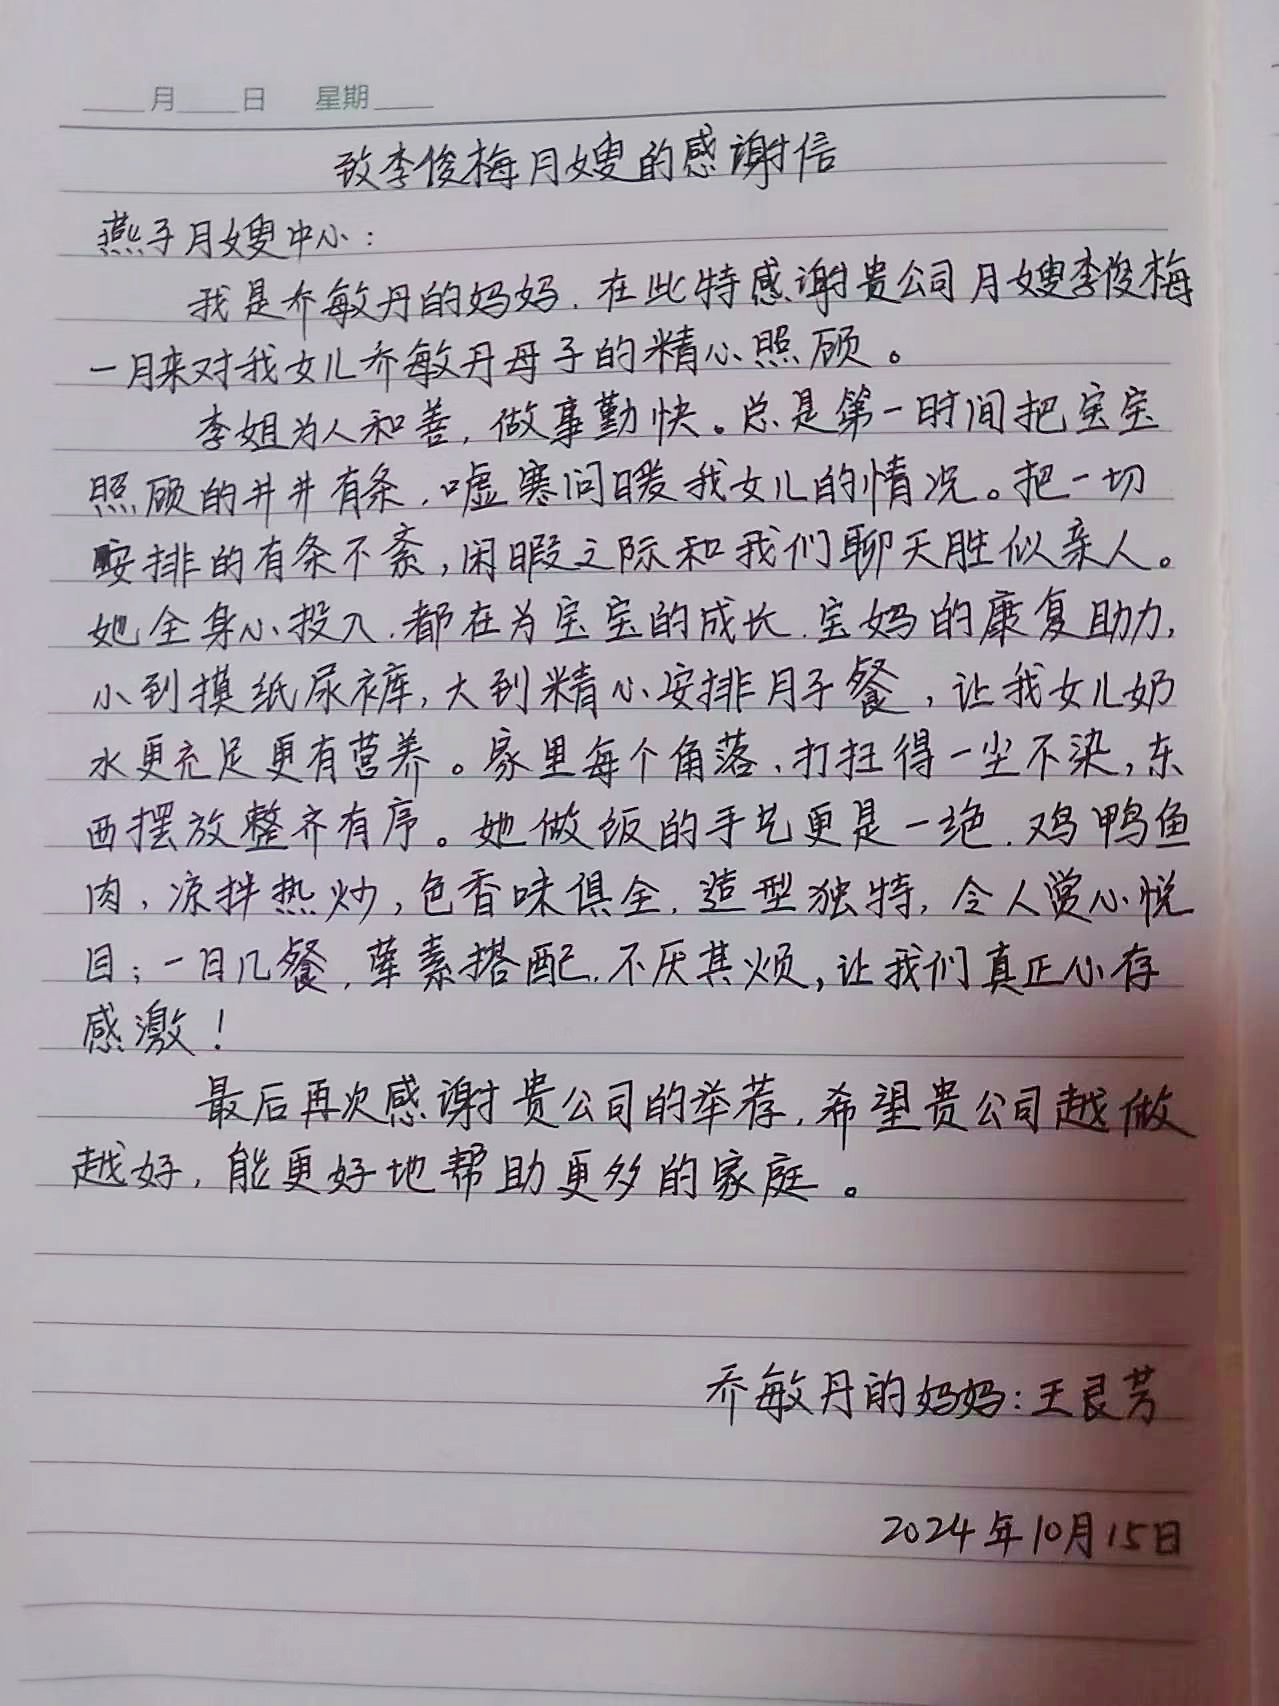 ____月____日 星期____
致李俊梅月嫂的感谢信
燕子月嫂中心：
我是乔敏丹的妈妈，在此特感谢贵公司月嫂李俊梅
一月来对我女儿乔敏丹母子的精心照顾。
李姐为人和善，做事勤快。总是第一时间把宝宝
照顾的井井有条，嘘寒问暖我女儿的情况。把一切
安排的有条不紊，闲暇之际和我们聊天胜似亲人。
她全身心投入，都在为宝宝的成长、宝妈的康复助力，
小到摸纸尿裤，大到精心安排月子餐，让我女儿奶
水更充足更有营养。家里每个角落、打扫得一尘不染，东
西摆放整齐有序。她做饭的手艺更是一绝，鸡鸭鱼
肉，凉拌热炒，色香味俱全，造型独特，令人赏心悦
目；一日几餐，荤素搭配，不厌其烦，让我们真正心存
感激！
最后再次感谢贵公司的举荐，希望贵公司越做
越好，能更好地帮助更多的家庭。
乔敏丹的妈妈：王良芳
2024年10月15日